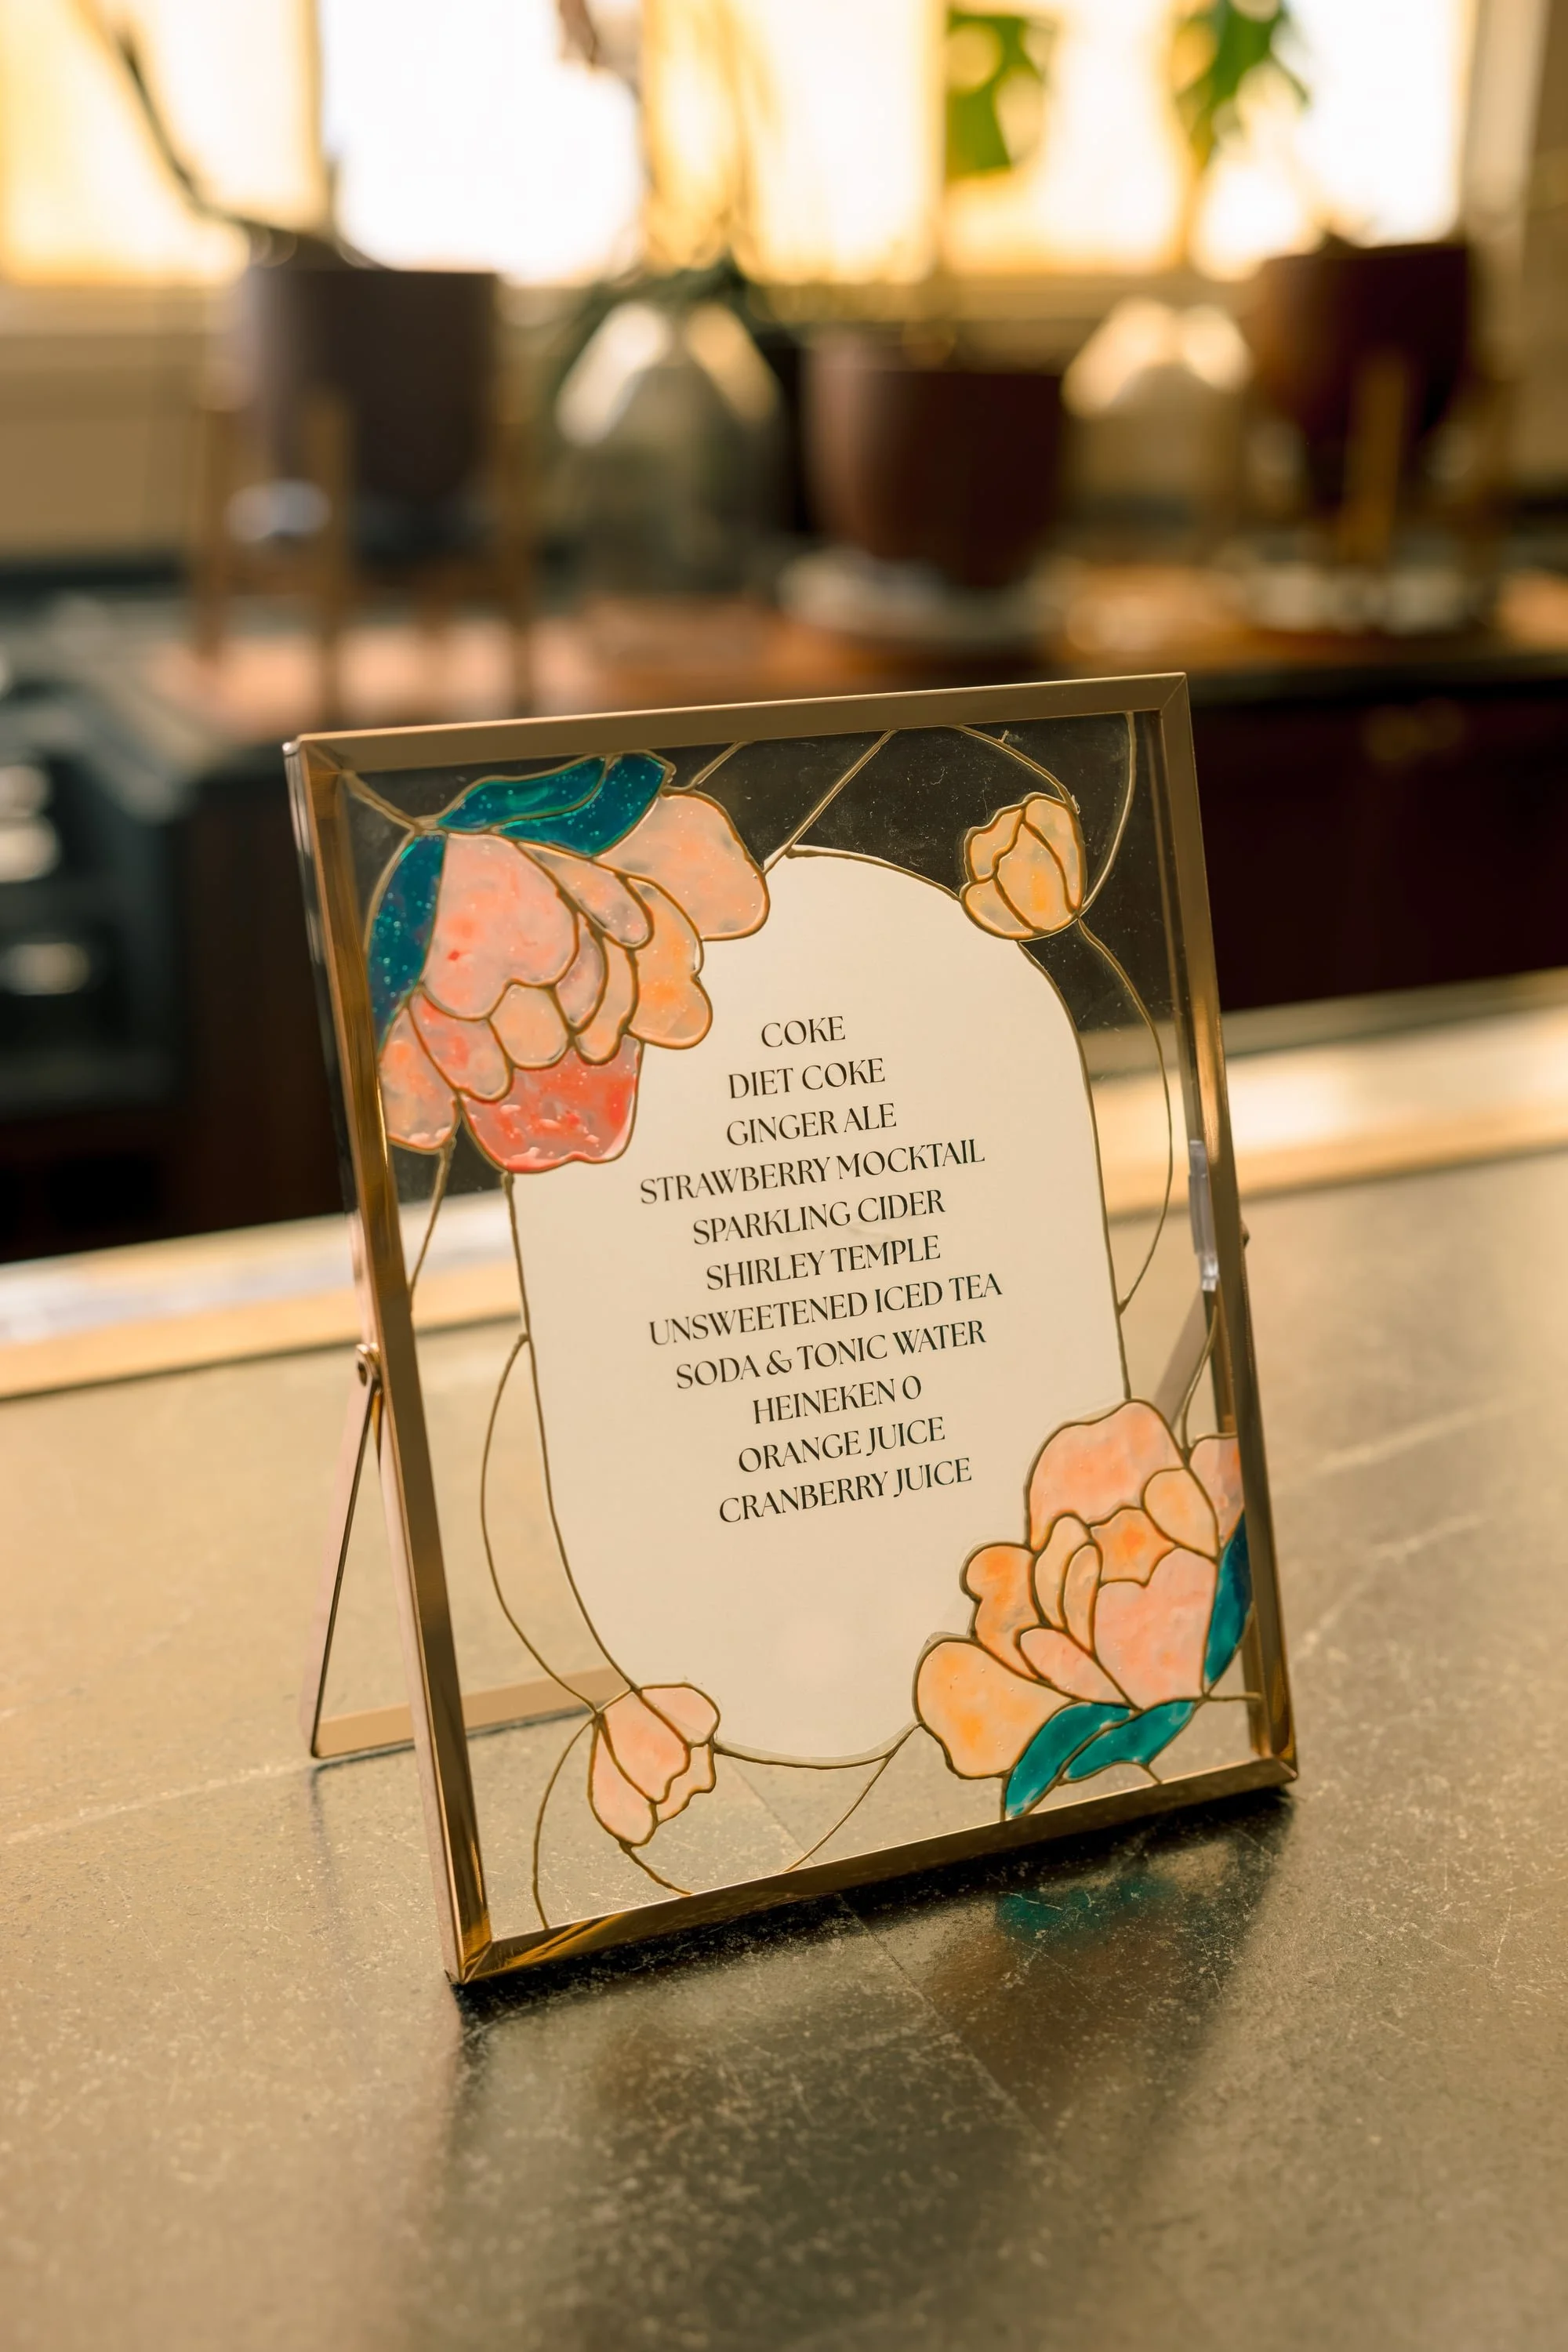 COKE
DIET COKE
GINGER ALE
STRAWBERRY MOCKTAIL
SPARKLING CIDER
SHIRLEY TEMPLE
UNSWEETENED ICED TEA
SODA & TONIC WATER
HEINEKEN 0
ORANGE JUICE
CRANBERRY JUICE